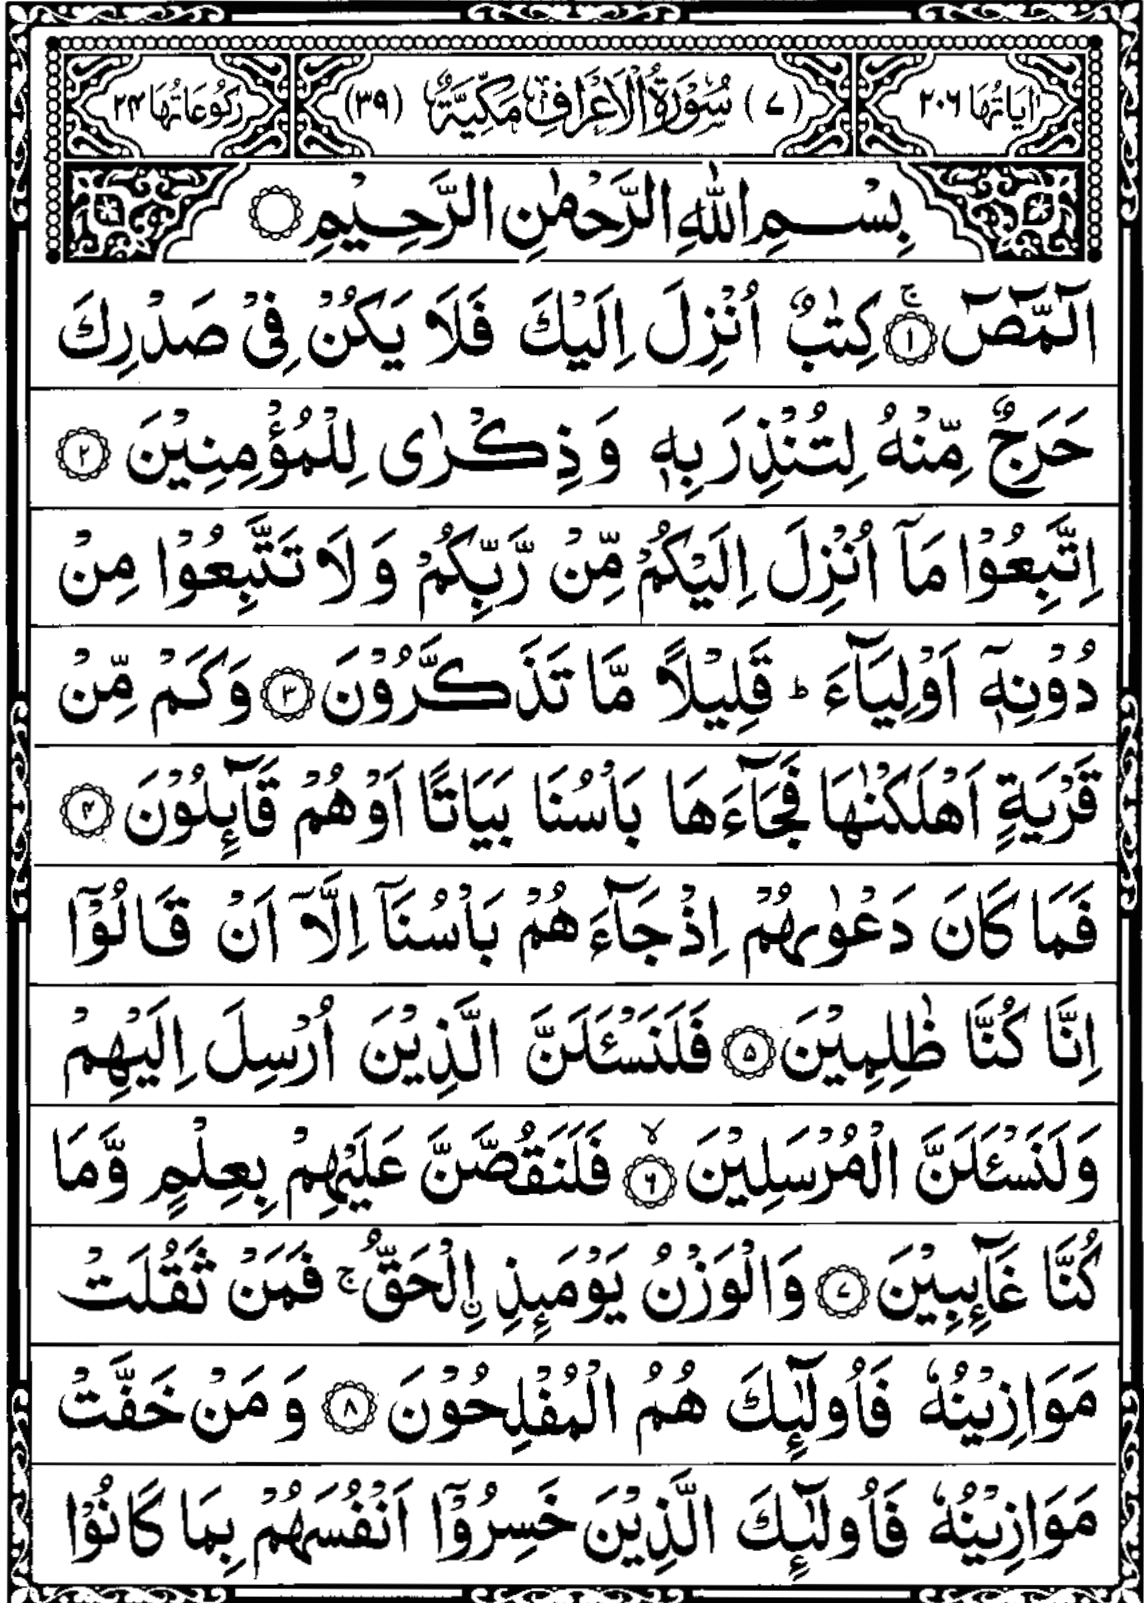 اٰيَاتُهَا ٢٠٦ (٧) سُوْرَةُ الْاَعْرَافِ مَكِّيَّةٌ (٣٩) رُكُوْعَاتُهَا ٢٤
بِسْمِ اللّٰهِ الرَّحْمٰنِ الرَّحِيْمِ
الٓمّٓصٓ ۚ ١ كِتٰبٌ اُنْزِلَ اِلَيْكَ فَلَا يَكُنْ فِيْ صَدْرِكَ
حَرَجٌ مِّنْهُ لِتُنْذِرَ بِهٖ وَذِكْرٰى لِلْمُؤْمِنِيْنَ ٢
اِتَّبِعُوْا مَآ اُنْزِلَ اِلَيْكُمْ مِّنْ رَّبِّكُمْ وَلَا تَتَّبِعُوْا مِنْ
دُوْنِهٖٓ اَوْلِيَآءَ ؕ قَلِيْلًا مَّا تَذَكَّرُوْنَ ٣ وَكَمْ مِّنْ
قَرْيَةٍ اَهْلَكْنٰهَا فَجَآءَهَا بَاْسُنَا بَيَاتًا اَوْ هُمْ قَآىِٕلُوْنَ ٤
فَمَا كَانَ دَعْوٰىهُمْ اِذْ جَآءَهُمْ بَاْسُنَآ اِلَّآ اَنْ قَالُوْٓا
اِنَّا كُنَّا ظٰلِمِيْنَ ٥ فَلَنَسْـَٔلَنَّ الَّذِيْنَ اُرْسِلَ اِلَيْهِمْ
وَلَنَسْـَٔلَنَّ الْمُرْسَلِيْنَ ۙ ٦ فَلَنَقُصَّنَّ عَلَيْهِمْ بِعِلْمٍ وَّمَا
كُنَّا غَآىِٕبِيْنَ ٧ وَالْوَزْنُ يَوْمَىِٕذِ ِۨالْحَقُّ ۚ فَمَنْ ثَقُلَتْ
مَوَازِيْنُهٗ فَاُولٰٓىِٕكَ هُمُ الْمُفْلِحُوْنَ ٨ وَمَنْ خَفَّتْ
مَوَازِيْنُهٗ فَاُولٰٓىِٕكَ الَّذِيْنَ خَسِرُوْٓا اَنْفُسَهُمْ بِمَا كَانُوْا